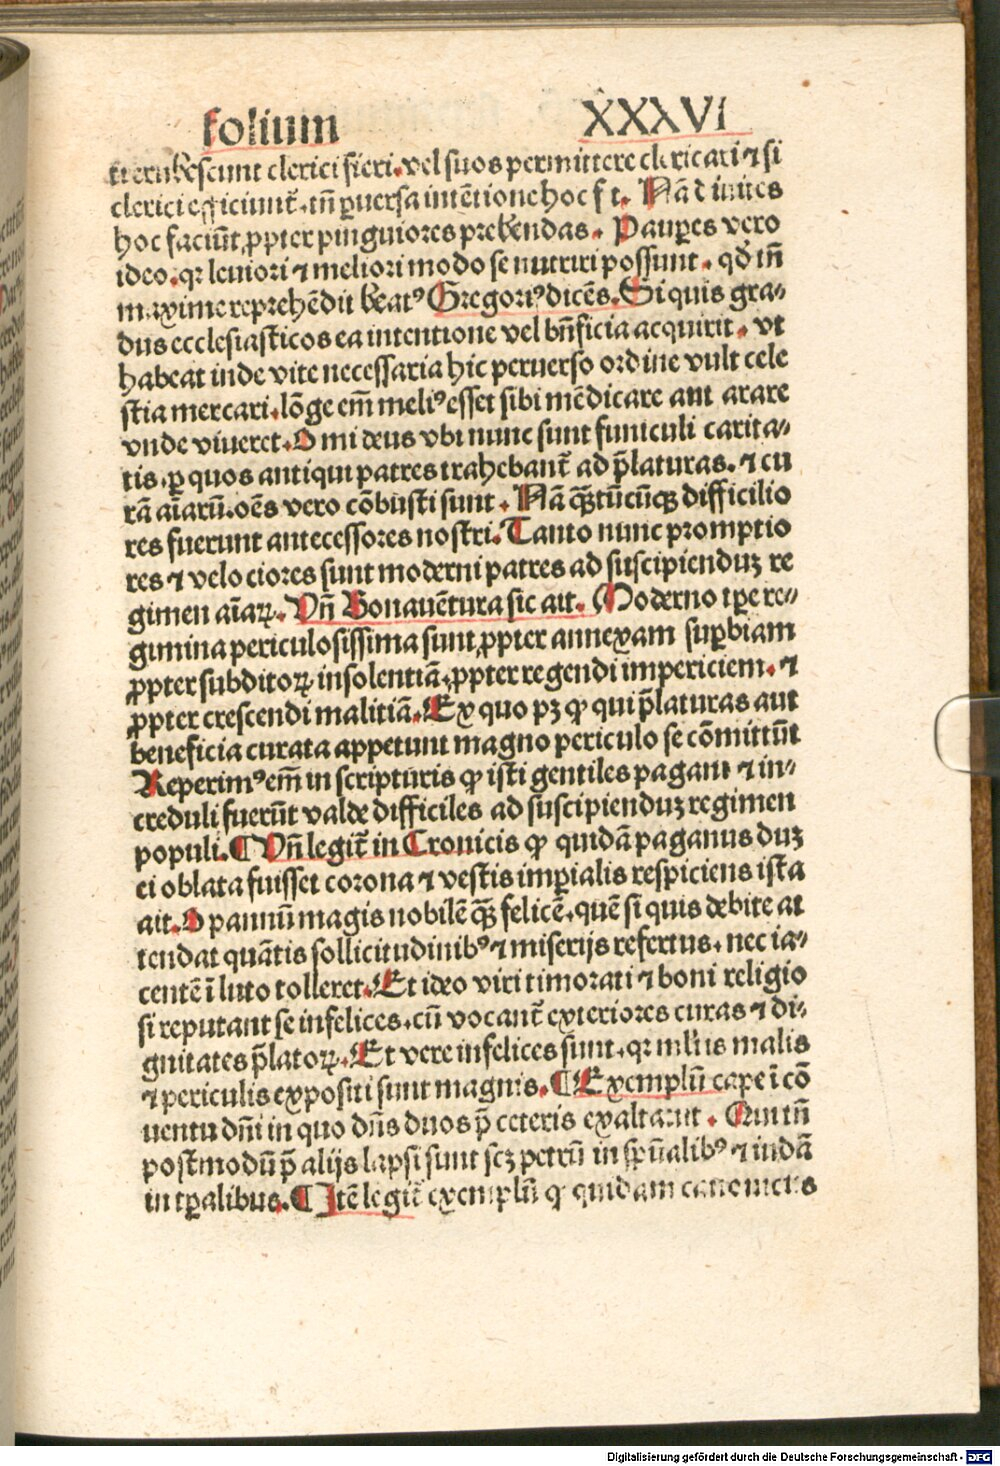 folium XXXVI
fieri. vel suos permittere clericari ⁊ si
clerici efficiunt᷑. tn̄ ꝑuersa intētione hoc
hoc faciūt ꝓpter pinguiores prebendas. Pauꝑes vero
ideo. qꝛ leuiori ⁊ meliori modo se nutriri possunt. qd̕ tn̄
maxime reprehēdit beatꝰ Gregoriꝰ dicēs. Si quis gra⸗
dus ecclesiasticos ea intentione vel bn̄ficia acquirit. vt
habeat inde vite necessaria hic peruerso ordine vult cele
stia mercari. lōge em̄ meliꝰ esset sibi mēdicare aut arare
vnde viueret. O mi deus vbi nunc sunt funiculi carita⸗
tis. ꝑ quos antiqui patres trahebant᷑ ad p̄laturas. ⁊ cu
rā aīarū. oēs vero cōbusti sunt. Nā qꝫtūcūqꝫ difficilio
res fuerunt antecessores nostri. Tanto nunc promptio
res ⁊ velociores sunt moderni patres ad suscipienduꝫ re
gimen aīaꝝ. Vn̄ Bonauētura sic ait. Moderno tꝑe re⸗
gimina periculosissima sunt ꝓpter annexam suꝑbiam
ꝓpter subditoꝝ insolentiā. ꝓpter regendi impericiem. ⁊
ꝓpter crescendi malitiā. Ex quo pꝫ ꝙ qui p̄laturas aut
beneficia curata appetunt magno periculo se cōmittūt
Reperimꝰ em̄ in scripturis ꝙ isti gentiles pagani ⁊ in⸗
creduli fuerūt valde difficiles ad suscipienduꝫ regimen
populi. ¶ Vn̄ legit᷑ in Cronicis ꝙ quidā paganus duꝫ
ei oblata fuisset corona ⁊ vestis imꝑialis respiciens ista
ait. O pannū magis nobilē qꝫ felicē. quē si quis debite at
tendat quātis sollicitudinibꝰ ⁊ miserijs refertus. nec ia⸗
centē ī luto tolleret. Et ideo viri timorati ⁊ boni religio
si reputant se infelices. cū vocant᷑ exteriores curas ⁊ di⸗
gnitates p̄latoꝝ. Et vere infelices sunt. qꝛ mltis malis
⁊ periculis expositi sunt magnis. ¶ Exemplū cape ī cō
uentu dn̄i in quo dn̄s duos p̄ ceteris exaltauit. Qui tn̄
postmodū p̄ alijs lapsi sunt scꝫ petrū in sp̄ualibꝰ ⁊ iudā
in tꝑalibus. ¶ Itē legit᷑ exemplū ꝙ quidam canonicus
Digitalisierung gefördert durch die Deutsche Forschungsgemeinschaft - DFG